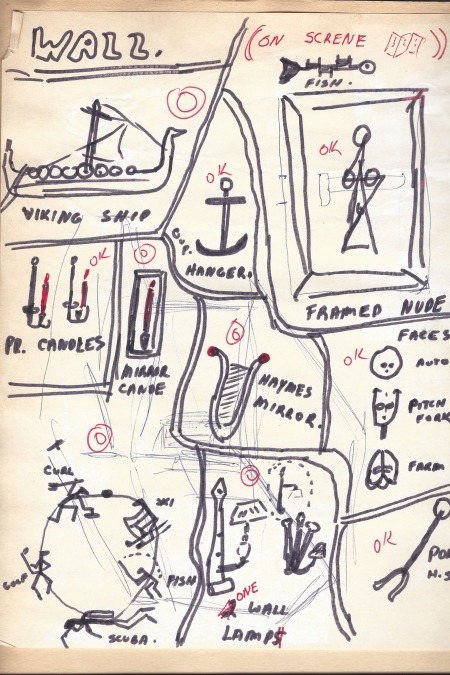 WALL.
(ON SCRENE ))
FISH.
OK
VIKING SHIP
OK
CUP.
HANGER.
FRAMED NUDE
OK
PR. CANDLES
MIRROR
CANDE
HAYMES
MIRROR.
FACES
OK
AUTO
PITCH
FORK
FARM
CURL
SKI
GOLF
FISH
SCUBA.
ONE
2 WALL
LAMPS
OK
H.S